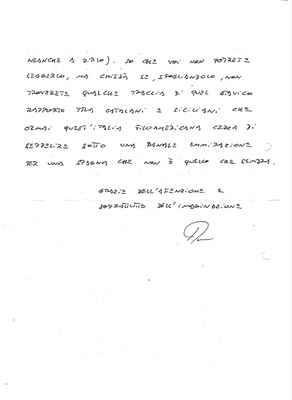 NEANCHE A DIRLO). SO CHE VOI NON POTRETE
LEGGERLO, MA CHISSÀ SE, SFOGLIANDOLO, NON
TROVERETE QUALCHE TRACCIA DI QUEL ATAVICO
RAPPORTO TRA CATALANI E SICILIANI CHE
ORMAI QUEST'ITALIA FILOAMERICANA CERCA DI
SEPPELIRE SOTTO UNA BANALE AMMIRAZIONE
PER UNA SPAGNA CHE NON È QUELLO CHE SEMBRA.
GRAZIE DELL'ATTENZIONE E
SOPRATTUTTO DELL'IMMAGINAZIONE